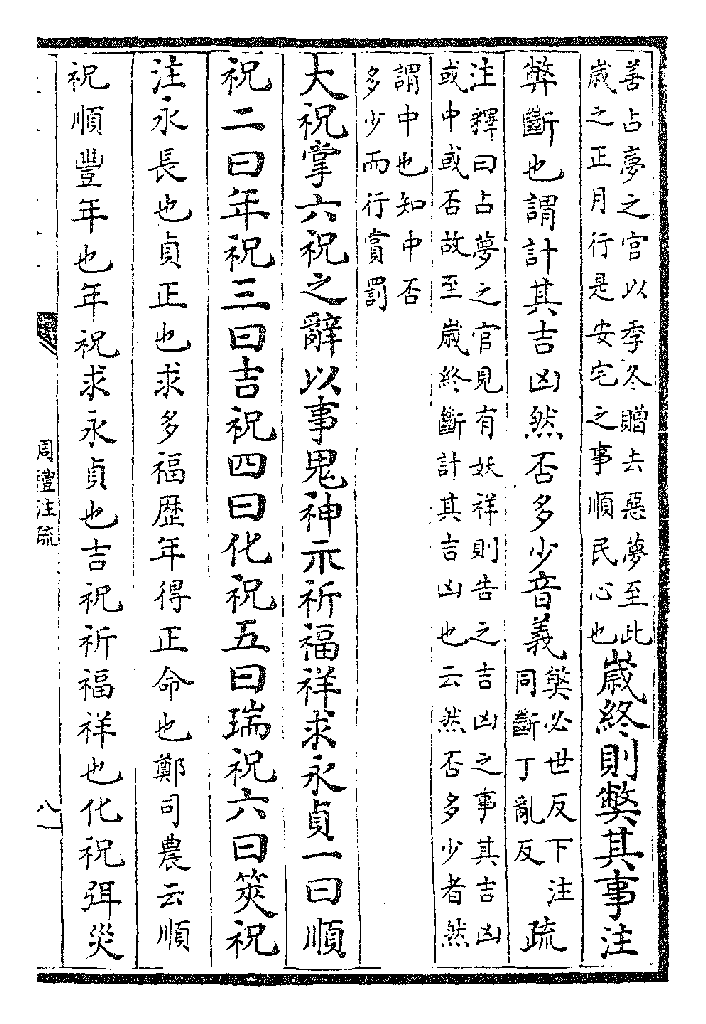 善占夢之官以季冬贈去惡夢至此
歲之正月行是安宅之事順民心也
歲終則弊其事注
弊斷也謂計其吉凶然否多少音義
獘必世反下注
同斷丁亂反
疏
注釋曰占夢之官見有妖祥則告之吉凶之事其吉凶
或中或否故至歲終斷計其吉凶也云然否多少者然
謂中也知中否
多少而行賞罰
大祝掌六祝之辭以事鬼神示祈福祥求永貞一曰順
祝二曰年祝三曰吉祝四曰化祝五曰瑞祝六曰筴祝
注永長也貞正也求多福歷年得正命也鄭司農云順
祝順豐年也年祝求永貞也吉祝祈福祥也化祝弭災
周禮注疏
八